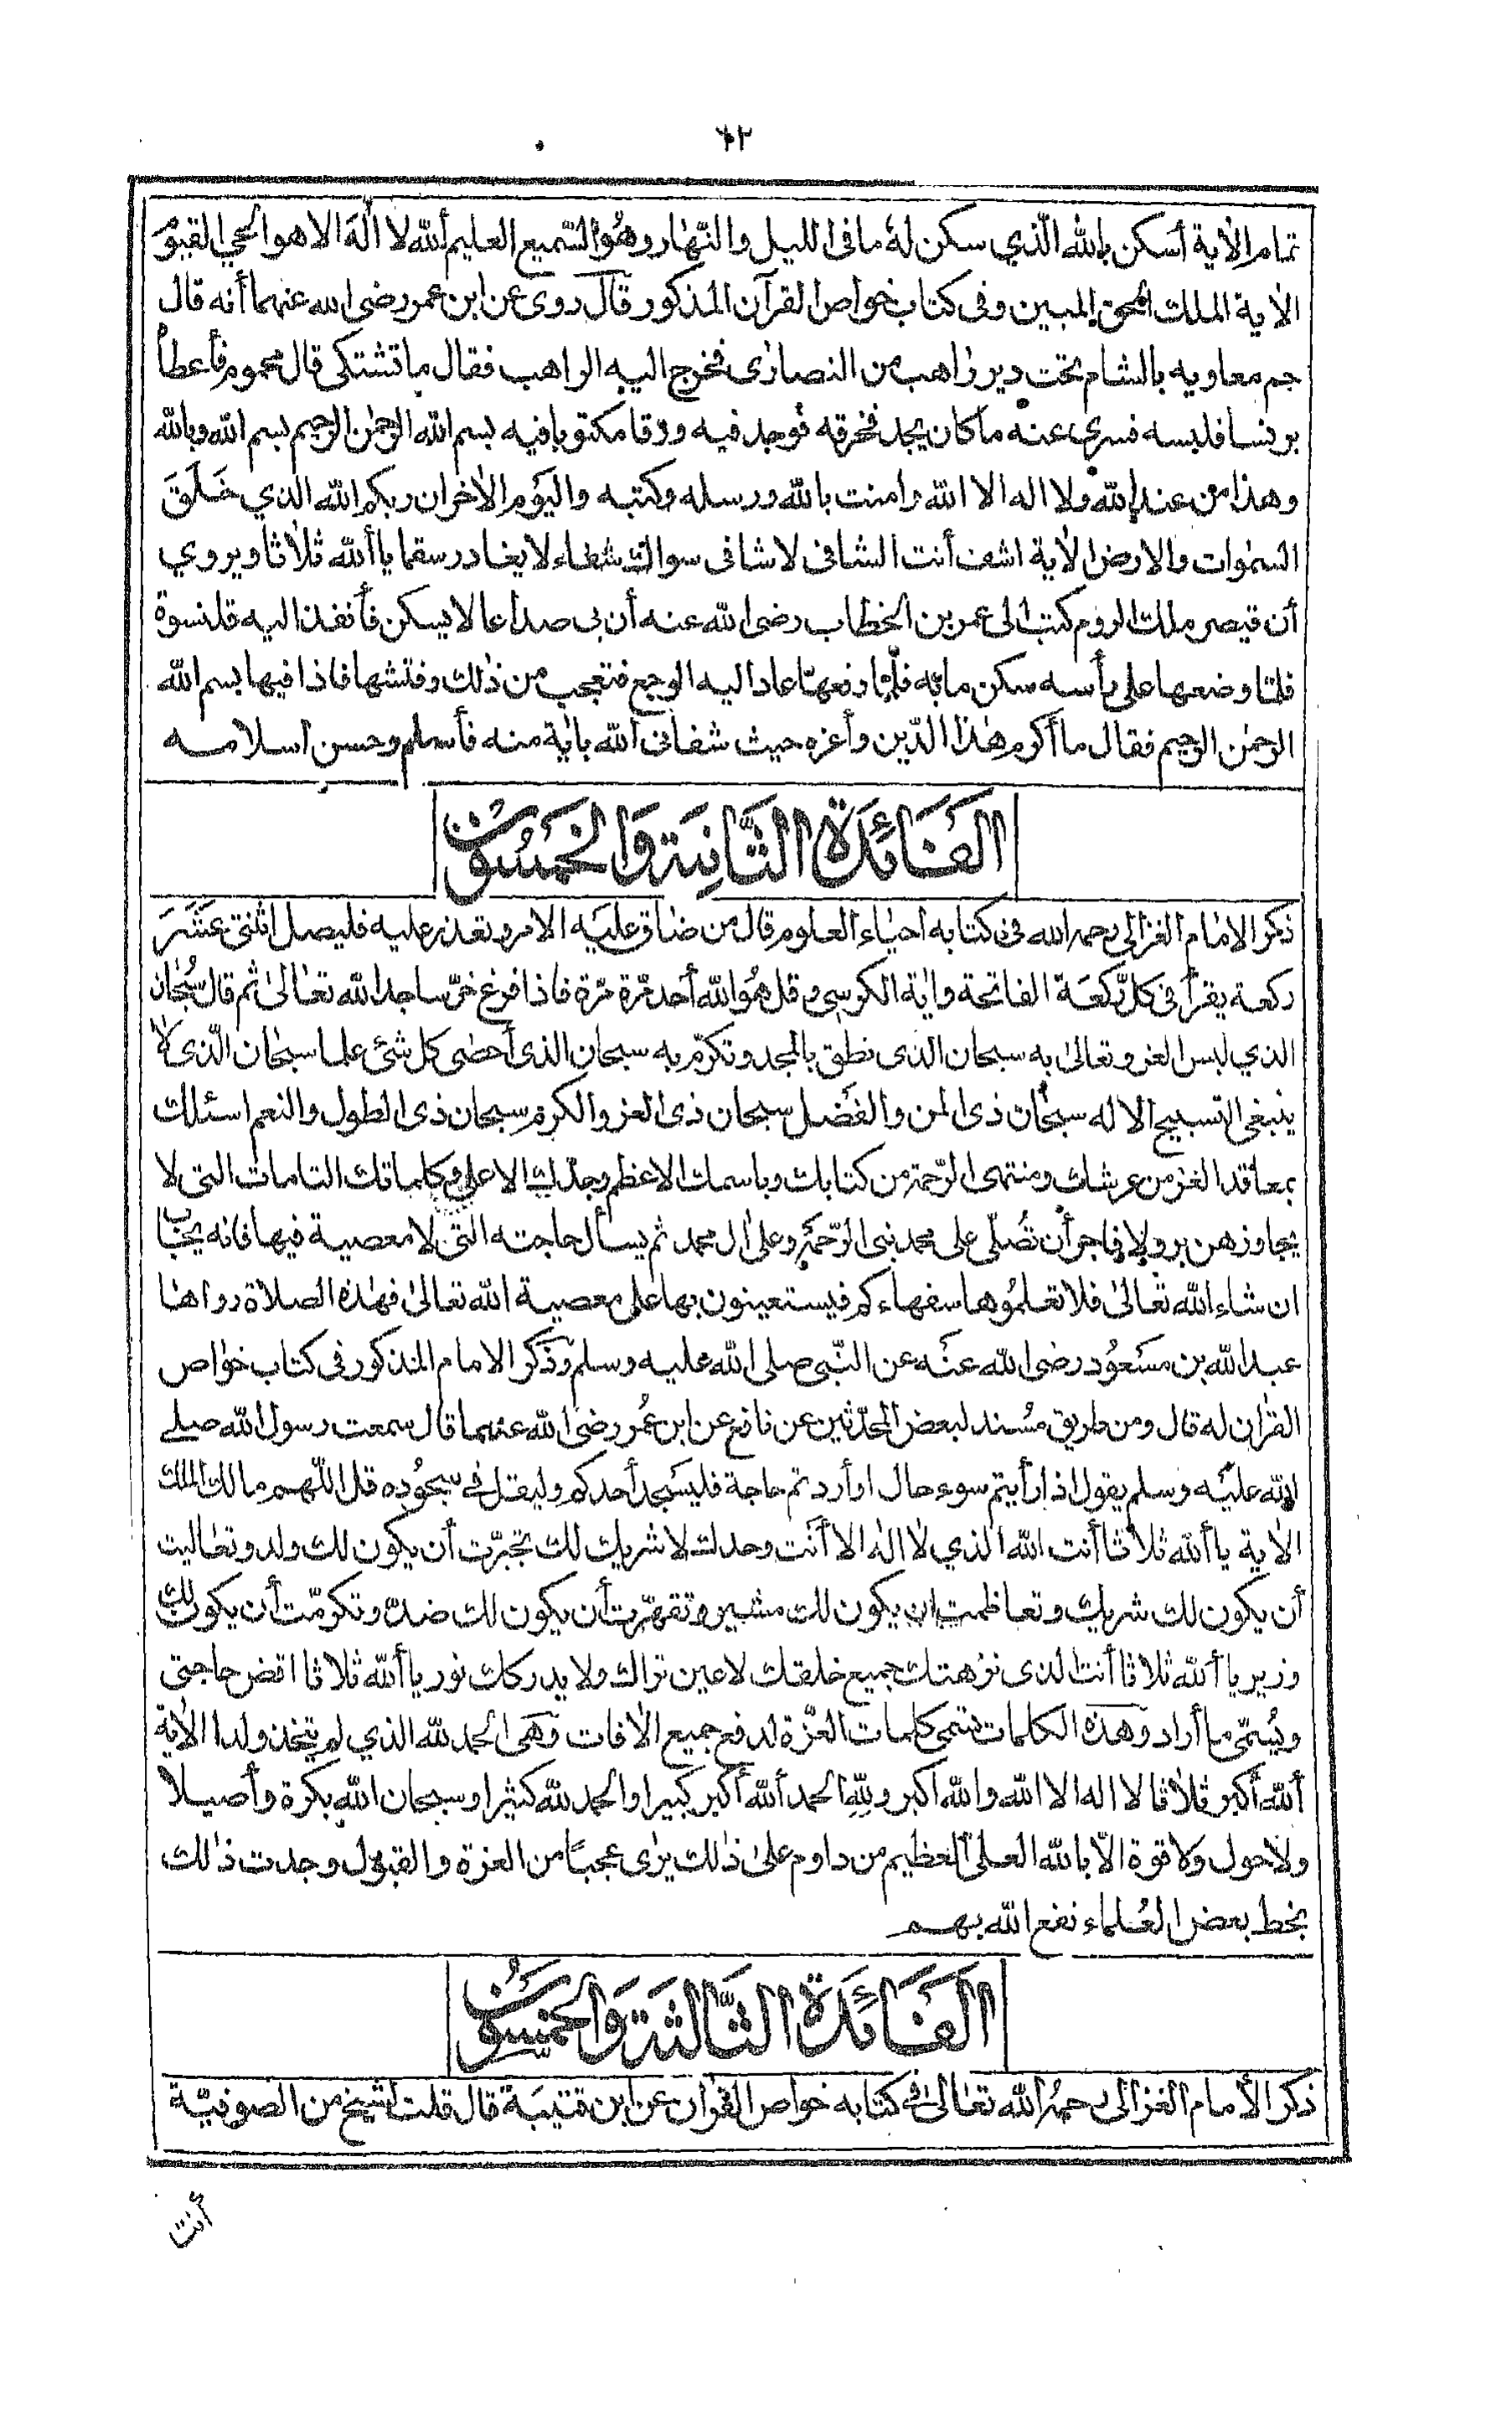 ٤٢
تمام الأية أسكن بالله الّذي سكن لهُ ما فى الليل والنّهار وهُو السّميع العليم أللّه لا اله الا هو الحي القيوم
الأية الملك الحق المبين وفى كتاب خواص القرآن المذكور قال روى عن ابن عمر رضى الله عنهما أنه قال
حم معاويه بالشام تحت دير راهب من النصارى فخرج اليه الراهب فقال ما تشتكى قال محموم فأعطاهُ
برنسا فلبسه فسرى عنه ما كان يجد فخرقه فوجد فيه ورقا مكتوبا فيه بسم اللّه الرحمٰن الرحيم بسم اللّه وباللّه
وهذا من عند اللّه ولا اله الا اللّه وامنت باللّه ورسله وكتبه واليوم الأخر ان ربكم اللّه الذي خَلَقَ
السمٰوات والارض الأية اشف أنت الشافى لا شافى سواك شفاء لا يغادر سقما يا أللّه ثلاثا ويروي
أن قيصر ملك الروم كتب الى عمر بن الخطاب رضى اللّه عنه أن بى صداعا لا يسكن فأنفذ اليه قلنسوة
فلمّا وضعها على رأسه سكن ما به فلمّا رفعها عاد اليه الوجع فتعجب من ذٰلك وفتشها فاذا فيها بسم اللّه
الرحمٰن الرحيم فقال ما أكرم هٰذا الدّين وأعزه حيث شفانى اللّه بأية منه فأسلم وحسن اسلامه
الفَائدَة الثَّانِيَة وَالخَمسُون
ذكر الامام الغزالى رحمه الله فى كتابه احياء العلوم قال من ضاق عليه الامر وتعذر عليه فليصل اثنتى عَشَرَ
ركعة يقرأ فى كل رّكعَة الفاتحة وأية الكرسي و قل هُو اللّه أحد مرّة مرّة فاذا فرغ خرّ ساجدا للّه تعَالىٰ ثم قال سُبْحان
الذي لبس العز وتعالىٰ به سبحان الذى نطق بالمجد وتكرّم به سبحان الذى أحصٰى كل شئ علما سبحان الّذى لا
ينبغى التسبيح الا له سبحٰان ذى المن والفَضل سبحان ذى العز والكرم سبحان ذى الطول والنعم اسئلك
بمعاقد العز من عرشك ومنتهى الرّحمة من كتابك وباسمك الاعظم وجدّك الاعلى وكلماتك التامات التى لا
يجاوزهن بر ولا فاجر أن تُصلّي على محمد نبى الرّحمَة وعلىٰ أل محمد ثم يسأل حاجته التى لا معصية فيها فانه يجَاب
ان شاء اللّه تعَالىٰ فلا تعَلمُوها سفهاءكم فيستعينون بها على معصية اللّه تعَالىٰ فهٰذه الصلاة رواها
عبد اللّه بن مسَعُود رضى اللّه عنَه عن النّبى صلى اللّه عليه وسلم وذَكر الامام المذكور فى كتاب خواص
القرٰان له قال ومن طريق مسُند لبعض المحَدّثين عن نافع عن ابن عُمر رضى اللّه عنهما قال سمعت رسول اللّه صلے
اللّه عليَه وسلم يقول اذا رأيتم سوء حال او أردتم حاجة فليسَجد أحدكم وليقل فى سجُوده قل اللّهم مالك الملك
الأية يا أللّه ثلاثا أنت اللّه الذي لا اله الا أنت وحدك لا شريك لك تجبرّت أن يكون لك ولد وتعاليت
أن يكون لك شريك وتعاظمت ان يكون لك مشير وتقهرّت أن يكون لك ضدّ وتكرمّت أن يكون لك
وزير يا أللّه ثلاثا أنت الذى نزهتك جميع خلقك لا عين تراك ولا يدركك نور يا أللّه ثلاثا اقض حاجتى
ويُسمّى ما أراد وهذه الكلمات تسمى كلمات العزّة لدفع جميع الأفات وَهى الحمد للّه الذي لم يتخذ ولدا الأية
أللّه أكبر ثلاثا لا اله الا اللّه واللّه اكبر وللّهِ الحمد أللّه أكبر كبيرا والحمد للّه كثيرا وسبحان اللّه بكرة وأصيلا
ولا حول ولا قوة الّا باللّه العلى العظيم من داوم علىٰ ذٰلك يرٰى عجبًا من العزة والقبول وجدت ذٰلك
بخط بعض العُلماء نفع اللّه بهم
الفَائَدَة الثَّالثَة وَالخمسُون
ذكر الأمام الغزالى رحمهُ اللّه تعَالىٰ فى كتابه خواص القرٰان عن ابن قتيبَة قال قلت لشيخ من الصوفيّة
أنت